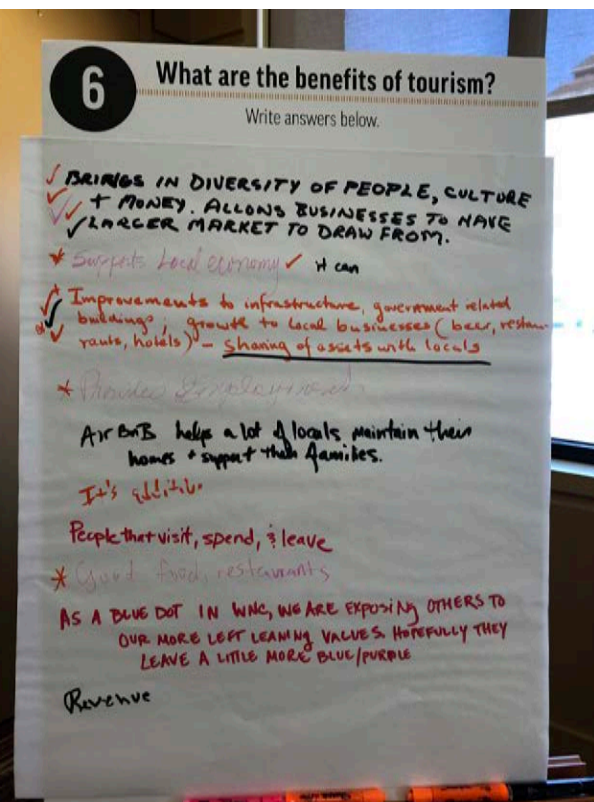 6
What are the benefits of tourism?
Write answers below.
BRINGS IN DIVERSITY OF PEOPLE, CULTURE
+ MONEY. ALLOWS BUSINESSES TO HAVE
LARGER MARKET TO DRAW FROM.
* Supports Local economy ✓ it can
Improvements to infrastructure, government related
buildings; growth to local businesses (beer, restau-
rants, hotels) - sharing of assets with locals
* Provides Employment
Air BnB helps a lot of locals maintain their
homes + support their families.
It's
People that visit, spend, & leave
* Good food, restaurants
AS A BLUE DOT IN WNC, WE ARE EXPOSING OTHERS TO
OUR MORE LEFT LEANING VALUES. HOPEFULLY THEY
LEAVE A LITTLE MORE BLUE/PURPLE
Revenue